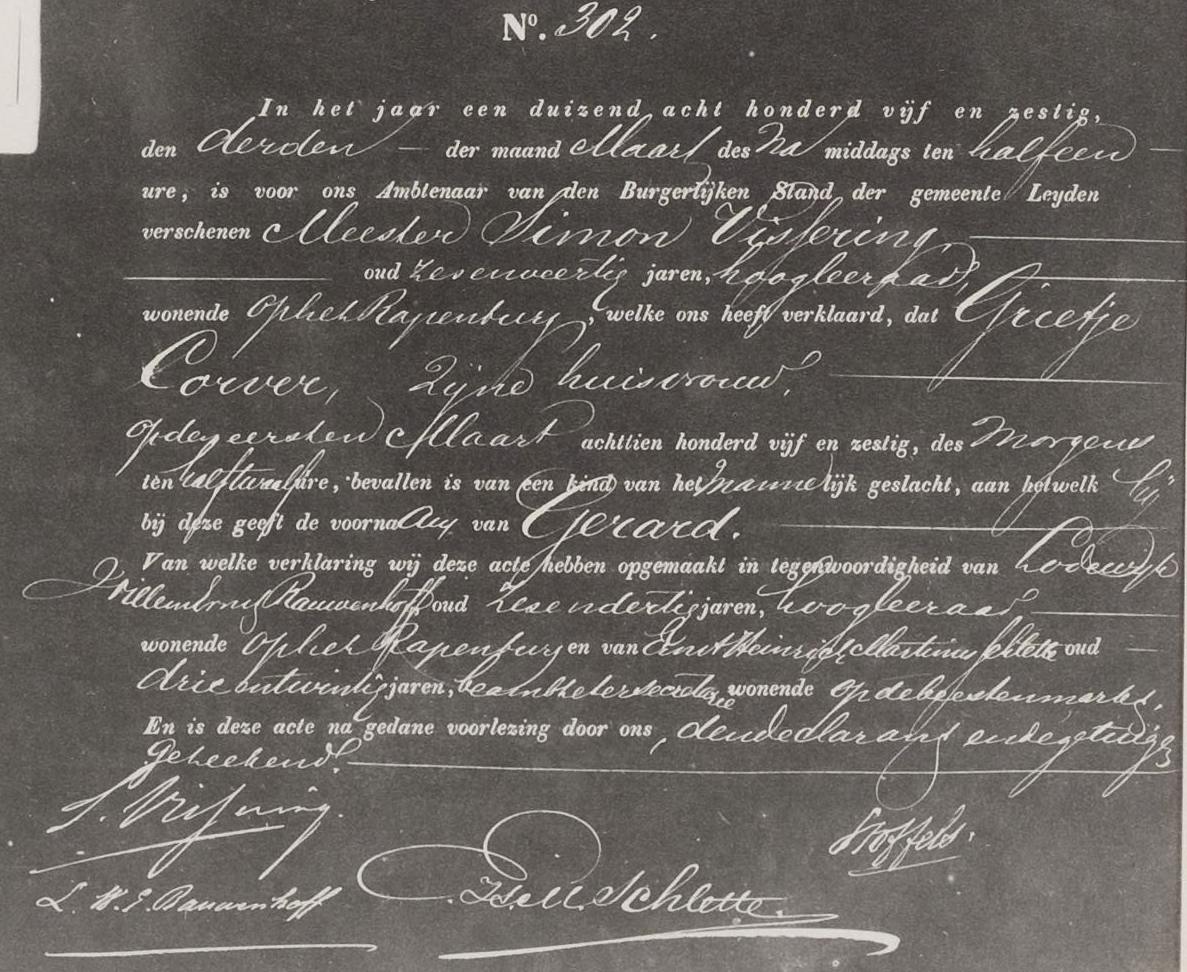 No. 302.
In het jaar een duizend acht honderd vijf en zestig,
den derden der maand Maart des Na middags ten halfeen
ure, is voor ons Ambtenaar van den Burgerlijken Stand der gemeente Leyden
verschenen Meester Simon Vissering,
oud zesenveertig jaren, hoogleeraar,
wonende op het Rapenburg, welke ons heeft verklaard, dat Grietje
Corver, zijne huisvrouw,
op den eersten Maart achttien honderd vijf en zestig, des Morgens
ten half twaalf ure, bevallen is van een kind van het Mannelijk geslacht, aan hetwelk hij
bij deze geeft de voornaam van Gerard.
Van welke verklaring wij deze acte hebben opgemaakt in tegenwoordigheid van Lodewijk
Willem Ernst Rauwenhoff oud zesendertig jaren, hoogleeraar
wonende op het Rapenburg en van Ernst Heinrich Martinus Schlette oud
drie entwintig jaren, beambte ter secretarie wonende op de beestenmarkt.
En is deze acte na gedane voorlezing door ons, den declarant en de getuigen
geteekend.
S. Vissering.
Stoffels.
L. W. E. Rauwenhoff
Schlette.